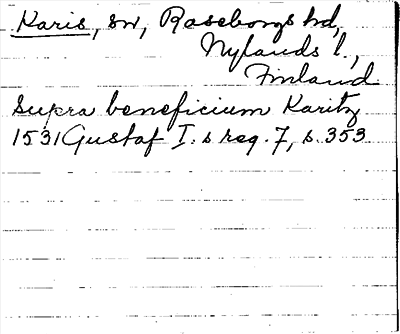 Karis, sn, Raseborgs hd,
Nylands l.,
Finland
Supra beneficium Karitz
1531 Gustaf I. s reg. 7, s. 353